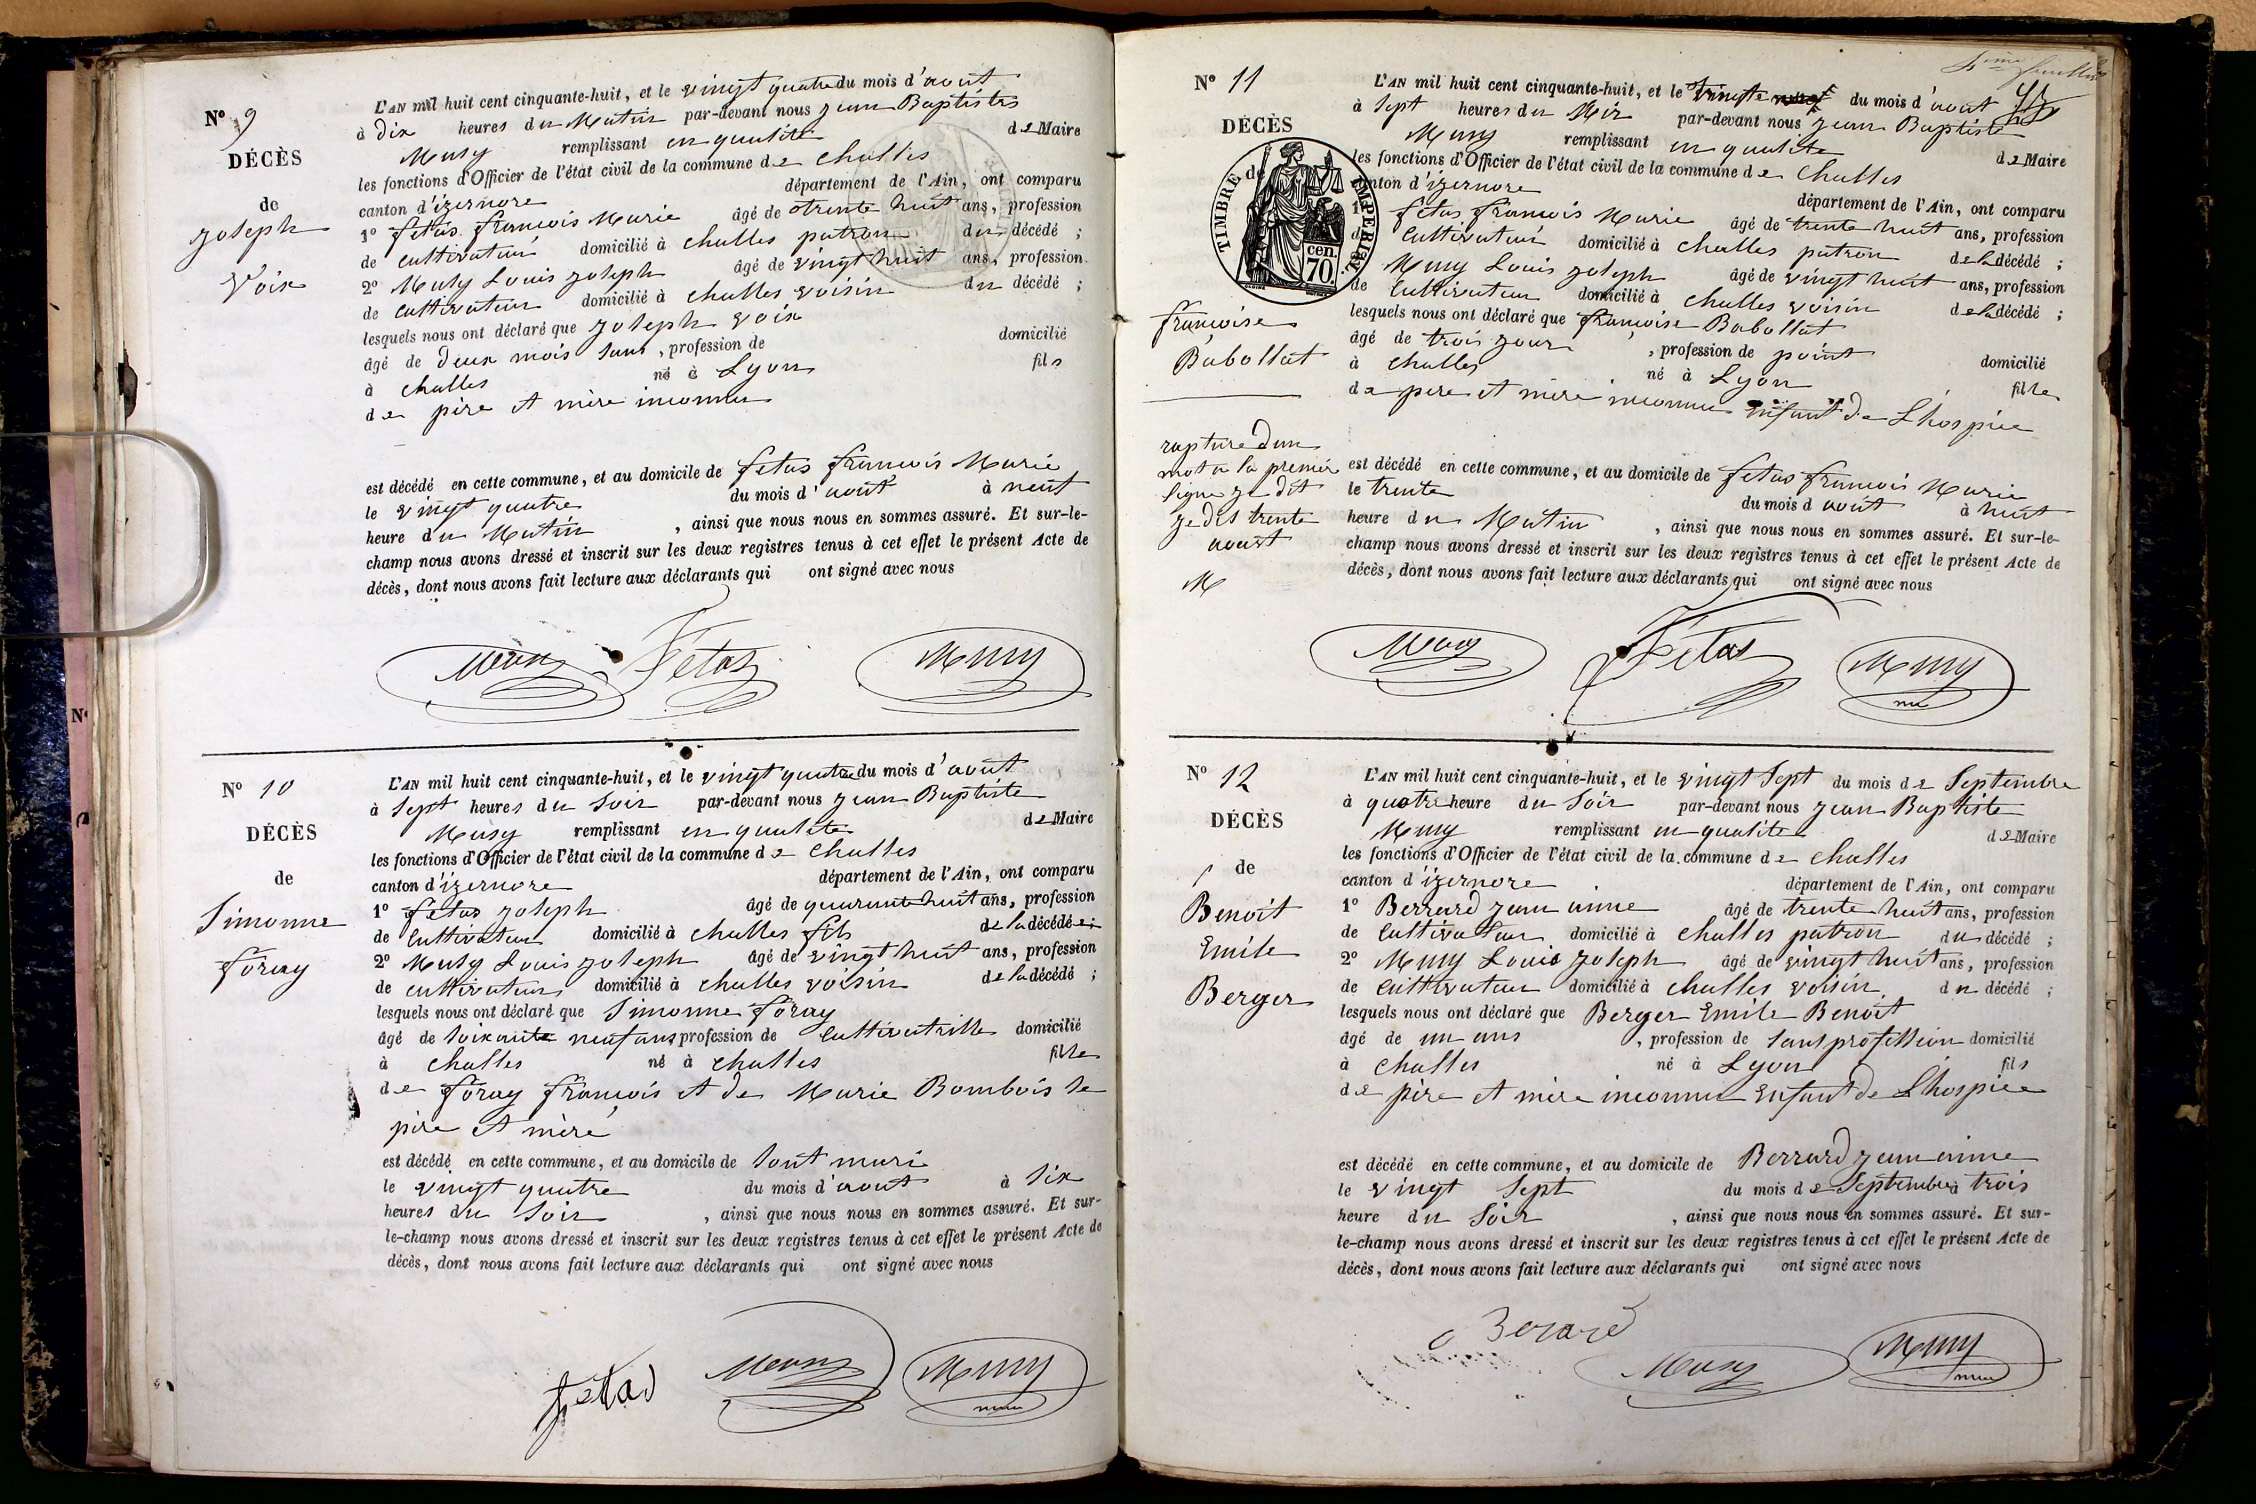 N° 9
DÉCÈS
de
Joseph
Voix
L'AN mil huit cent cinquante-huit, et le vingt quatre du mois d'aout
à dix heures du Matin par-devant nous jean Baptiste
Musy remplissant en qualité de Maire
les fonctions d'Officier de l'état civil de la commune de challes
canton d'izernore département de l'Ain, ont comparu
1° fétas françois Marie âgé de trente huit ans, profession
de cultivateur domicilié à challes patron du décédé ;
2° Musy Louis joseph âgé de vingt huit ans, profession
de cultivateur domicilié à challes voisin du décédé ;
lesquels nous ont déclaré que joseph voix
âgé de deux mois sans, profession de domicilié
à challes né à Lyon fils
de père et mère inconnu
est décédé en cette commune, et au domicile de fetas francois Marie
le vingt quatre du mois d'aout à neuf
heure du Matin, ainsi que nous nous en sommes assuré. Et sur-le-
champ nous avons dressé et inscrit sur les deux registres tenus à cet effet le présent Acte de
décès, dont nous avons fait lecture aux déclarants qui ont signé avec nous
Musy Fétas Musy
N° 10
DÉCÈS
de
Simonne
foray
L'AN mil huit cent cinquante-huit, et le vingt quatre du mois d'aout
à sept heures du soir par-devant nous jean Baptiste
Musy remplissant en qualite de Maire
les fonctions d'Officier de l'état civil de la commune de challes
canton d'izernore département de l'Ain, ont comparu
1° fetas joseph âgé de quarante huit ans, profession
de cultivateur domicilié à challes fils de la décédée ;
2° Musy Louis joseph âgé de vingt huit ans, profession
de cultivateur domicilié à challes voisin de la décédé ;
lesquels nous ont déclaré que Simonne foray
âgé de soixante neuf ans profession de cultivatrille domicilié
à challes né à challes fille
de foray françois et de Marie Bombois se
père et mère
est décédé en cette commune, et au domicile de sont mari
le vingt quatre du mois d'aout à six
heures du soir, ainsi que nous nous en sommes assuré. Et sur-
le-champ nous avons dressé et inscrit sur les deux registres tenus à cet effet le présent Acte de
décès, dont nous avons fait lecture aux déclarants qui ont signé avec nous
fetas Musy Musy
N° 11
DÉCÈS
de
TIMBRE IMPERIAL
70 cen.
françoise
Babollat
rapture dun
mot a la premier
ligne je dit
je dis trente
aoust
M
L'AN mil huit cent cinquante-huit, et le du mois d'aout
à sept heures du par-devant nous jean Baptiste
Musy remplissant en qualite de Maire
les fonctions d'Officier de l'état civil de la commune de challes
canton d'izernore département de l'Ain, ont comparu
1° fetas francois Marie âgé de trente huit ans, profession
de cultivateur domicilié à challes patron de la décédé ;
Musy Louis joseph âgé de vingt huit ans, profession
de cultivateur domicilié à challes voisin de la décédé ;
lesquels nous ont déclaré que françoise Babollat
âgé de trois jour, profession de point domicilié
à challes né à Lyon fille
de pere et mère inconnu enfant de L'hospice
est décédé en cette commune, et au domicile de fetas francois Marie
le trente du mois d aout à huit
heure du Matin, ainsi que nous nous en sommes assuré. Et sur-le-
champ nous avons dressé et inscrit sur les deux registres tenus à cet effet le présent Acte de
décès, dont nous avons fait lecture aux déclarants qui ont signé avec nous
Musy Fetas Musy
N° 12
DÉCÈS
de
Benoit
Emile
Berger
L'AN mil huit cent cinquante-huit, et le vingt sept du mois de Septembre
à quatre heure du soir par-devant nous jean Baptiste
Musy remplissant en qualite de Maire
les fonctions d'Officier de l'état civil de la commune de challes
canton d'izernore département de l'Ain, ont comparu
1° Berrard jean aime âgé de trente huit ans, profession
de cultivateur domicilié à challes patron du décédé ;
2° Musy Louis joseph âgé de vingt huit ans, profession
de cultivateur domicilié à challes voisin du décédé ;
lesquels nous ont déclaré que Berger Emile Benoit
âgé de un ans, profession de sans profession domicilié
à challes né à Lyon fils
de père et mère inconnu enfant de L'hospice
est décédé en cette commune, et au domicile de Berrard jean aime
le vingt sept du mois de Septembre à trois
heure du soir, ainsi que nous nous en sommes assuré. Et sur-
le-champ nous avons dressé et inscrit sur les deux registres tenus à cet effet le présent Acte de
décès, dont nous avons fait lecture aux déclarants qui ont signé avec nous
Musy Musy